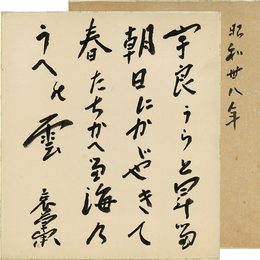 昭和卅八年
宇良うらと昇留
朝日にかゞやきて
春たちかへ留海乃
うへ能雲